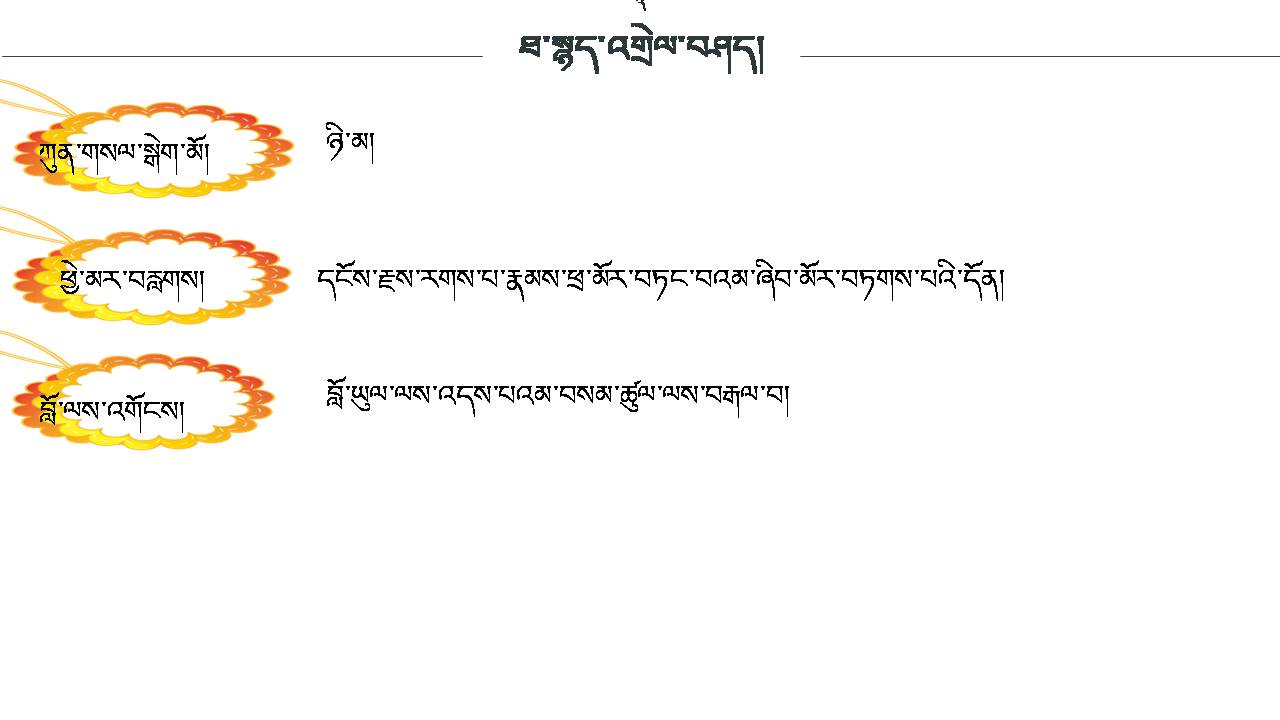 ཐ་སྙད་འགྲེལ་བཤད།
ཀུན་གསལ་སྒེག་མོ།
ཉི་མ།
ཕྱེ་མར་བརླགས།
དངོས་རྫས་རགས་པ་རྣམས་ཕྲ་མོར་བཏང་བའམ་ཞིབ་མོར་བཏགས་པའི་དོན།
བློ་ལས་འགོངས།
བློ་ཡུལ་ལས་འདས་པའམ་བསམ་ཚུལ་ལས་བརྒལ་བ།